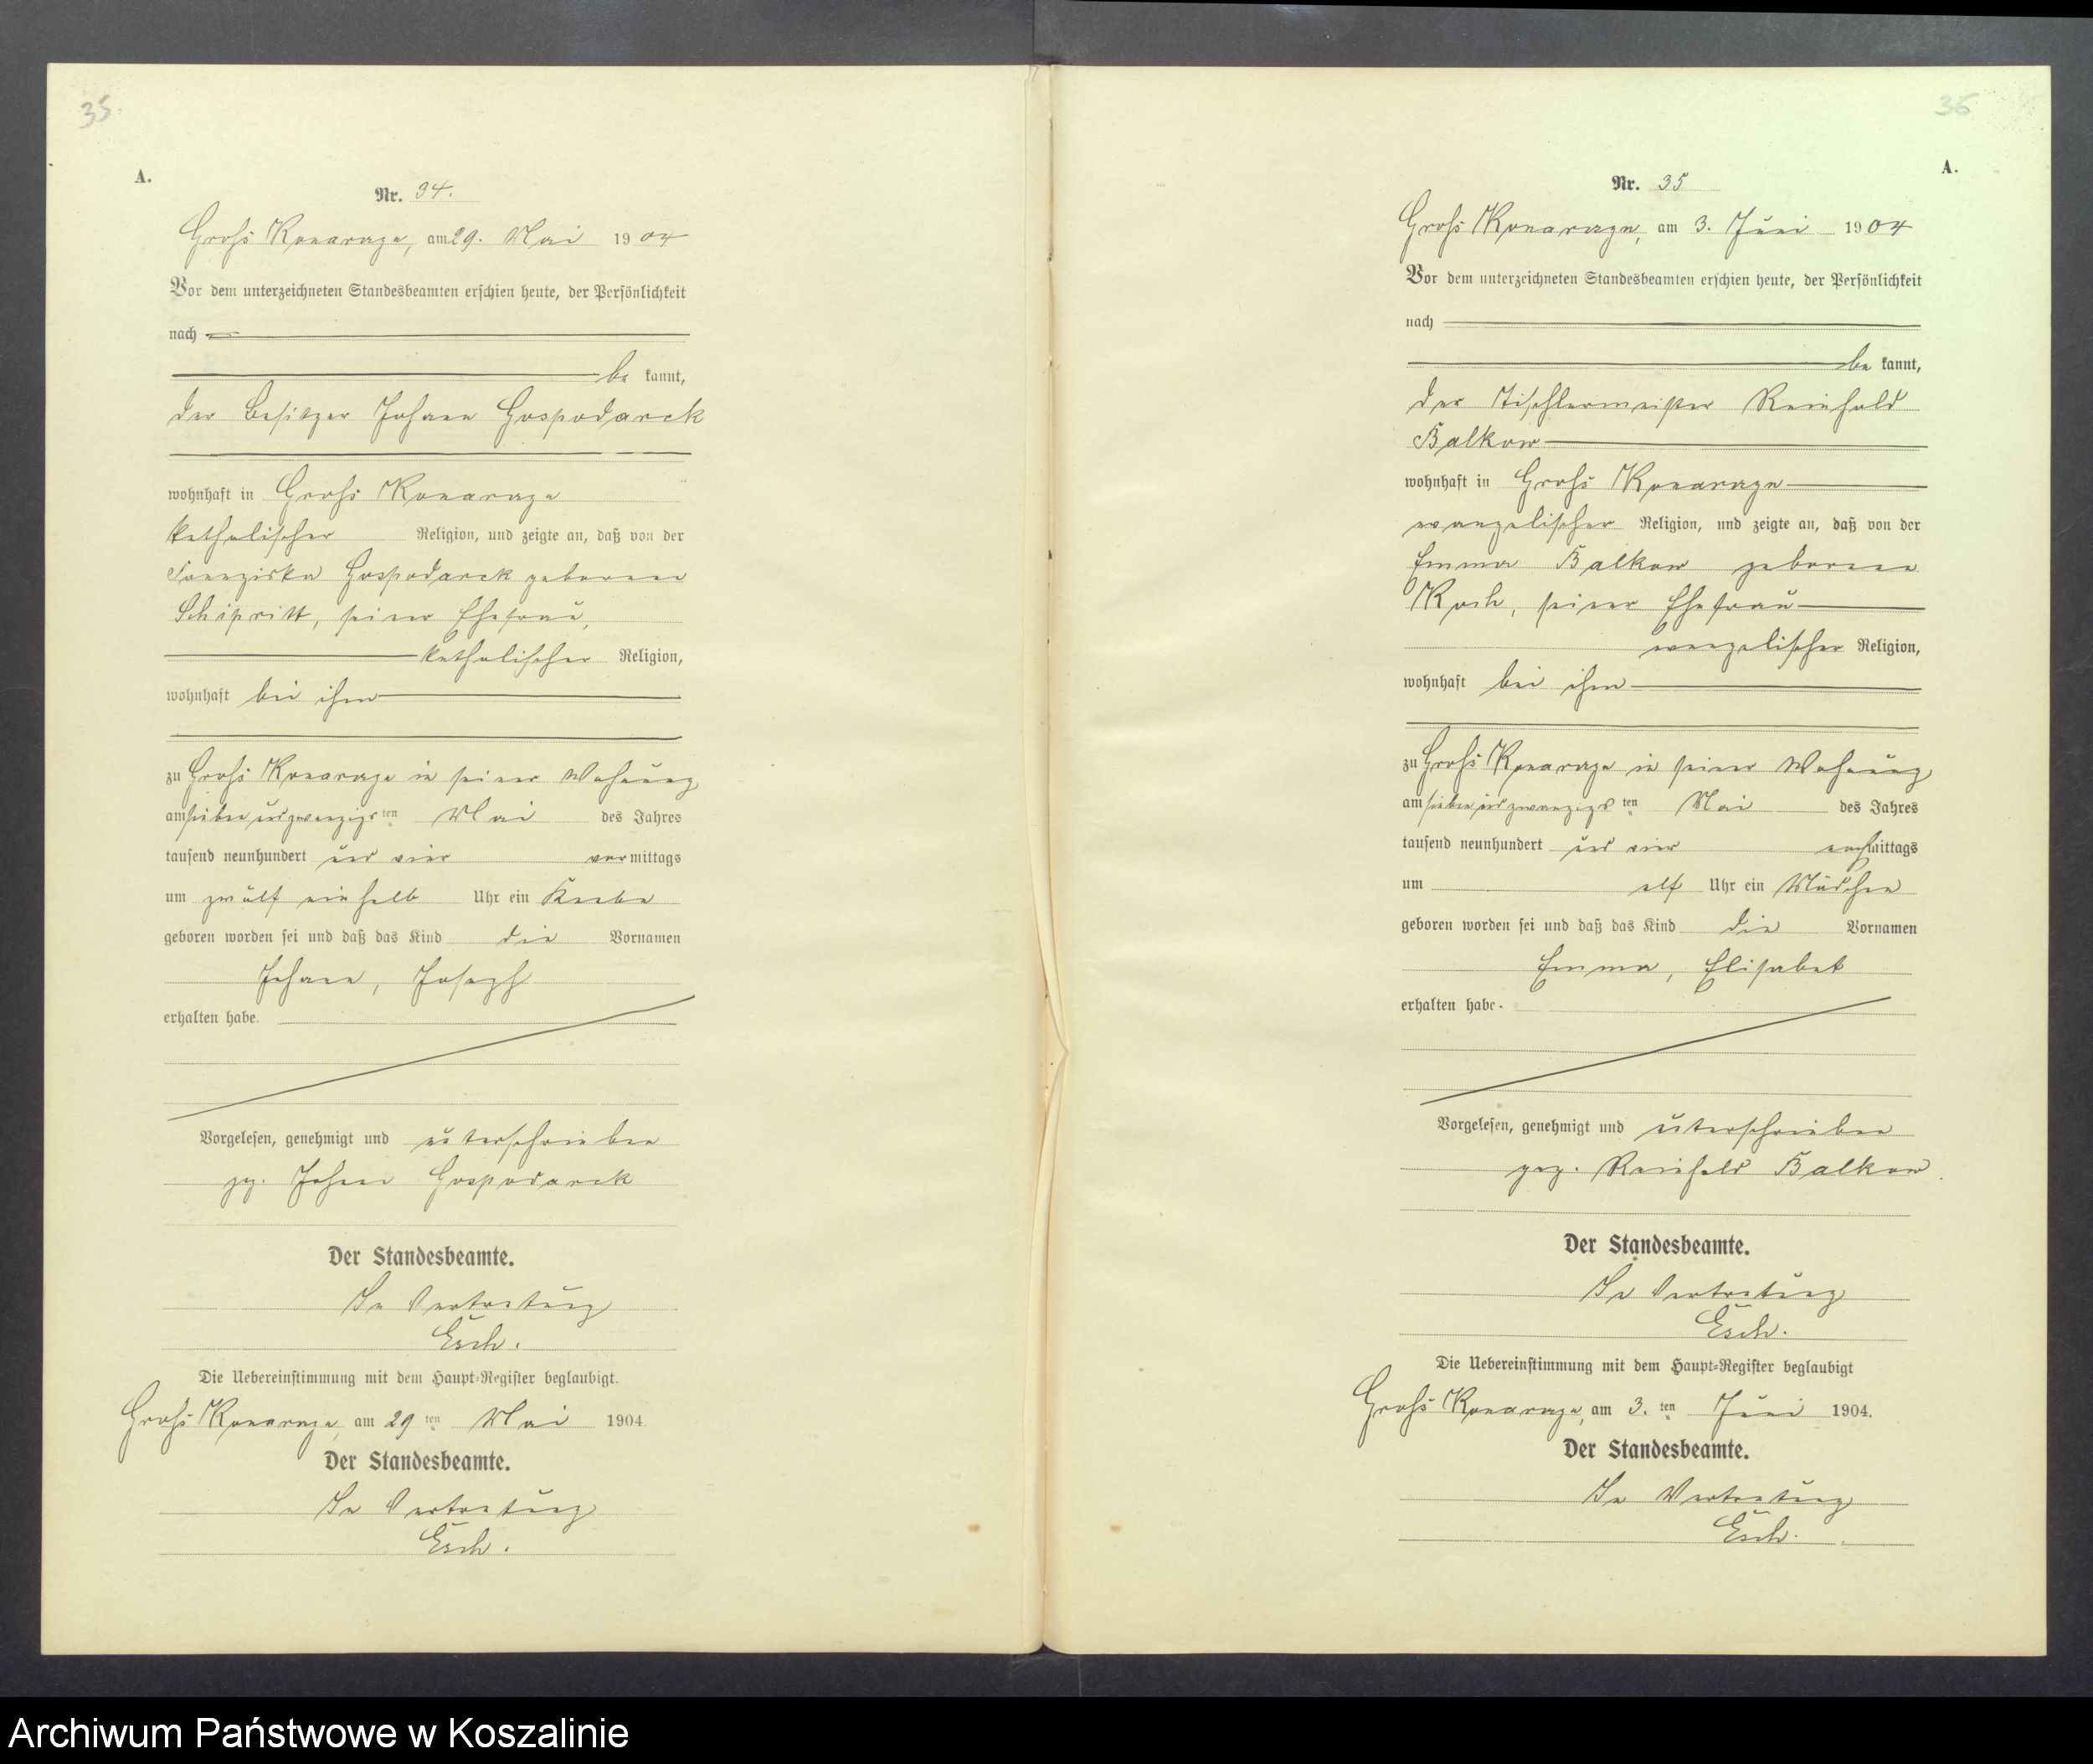 35
A.
Nr. 34.
Groß Konarczyn, am 29. Mai 1904
Vor dem unterzeichneten Standesbeamten erschien heute, der Persönlichkeit
nach
be kannt,
der Besitzer Johann Gospodarek
wohnhaft in Groß Konarczyn
katholischer Religion, und zeigte an, daß von der
Franziska Gospodarek geborenen
Schipritt, seiner Ehefrau,
katholischer Religion,
wohnhaft bei ihm
zu Groß Konarczyn in seiner Wohnung
am siebenundzwanzigsten Mai des Jahres
tausend neunhundert und vier vormittags
um zwölf einhalb Uhr ein Knabe
geboren worden sei und daß das Kind die Vornamen
Johann, Joseph
erhalten habe.
Vorgelesen, genehmigt und unterschrieben
gez. Johann Gospodarek
Der Standesbeamte.
In Vertretung
Esch.
Die Uebereinstimmung mit dem Haupt-Register beglaubigt.
Groß Konarczyn, am 29ten Mai 1904.
Der Standesbeamte.
In Vertretung
Esch.
36
A.
Nr. 35
Groß Konarczyn, am 3. Juni 1904
Vor dem unterzeichneten Standesbeamten erschien heute, der Persönlichkeit
nach
be kannt,
der Tischlermeister Reinhold
Balkow
wohnhaft in Groß Konarczyn
evangelischer Religion, und zeigte an, daß von der
Emma Balkow geborenen
Koch, seiner Ehefrau
evangelischer Religion,
wohnhaft bei ihm
zu Groß Konarczyn in seiner Wohnung
am siebenundzwanzigsten Mai des Jahres
tausend neunhundert und vier nachmittags
um elf Uhr ein Mädchen
geboren worden sei und daß das Kind die Vornamen
Emma, Elisabet
erhalten habe.
Vorgelesen, genehmigt und unterschrieben
gez. Reinhold Balkow
Der Standesbeamte.
In Vertretung
Esch.
Die Uebereinstimmung mit dem Haupt-Register beglaubigt
Groß Konarczyn, am 3.ten Juni 1904.
Der Standesbeamte.
In Vertretung
Esch.
Archiwum Państwowe w Koszalinie